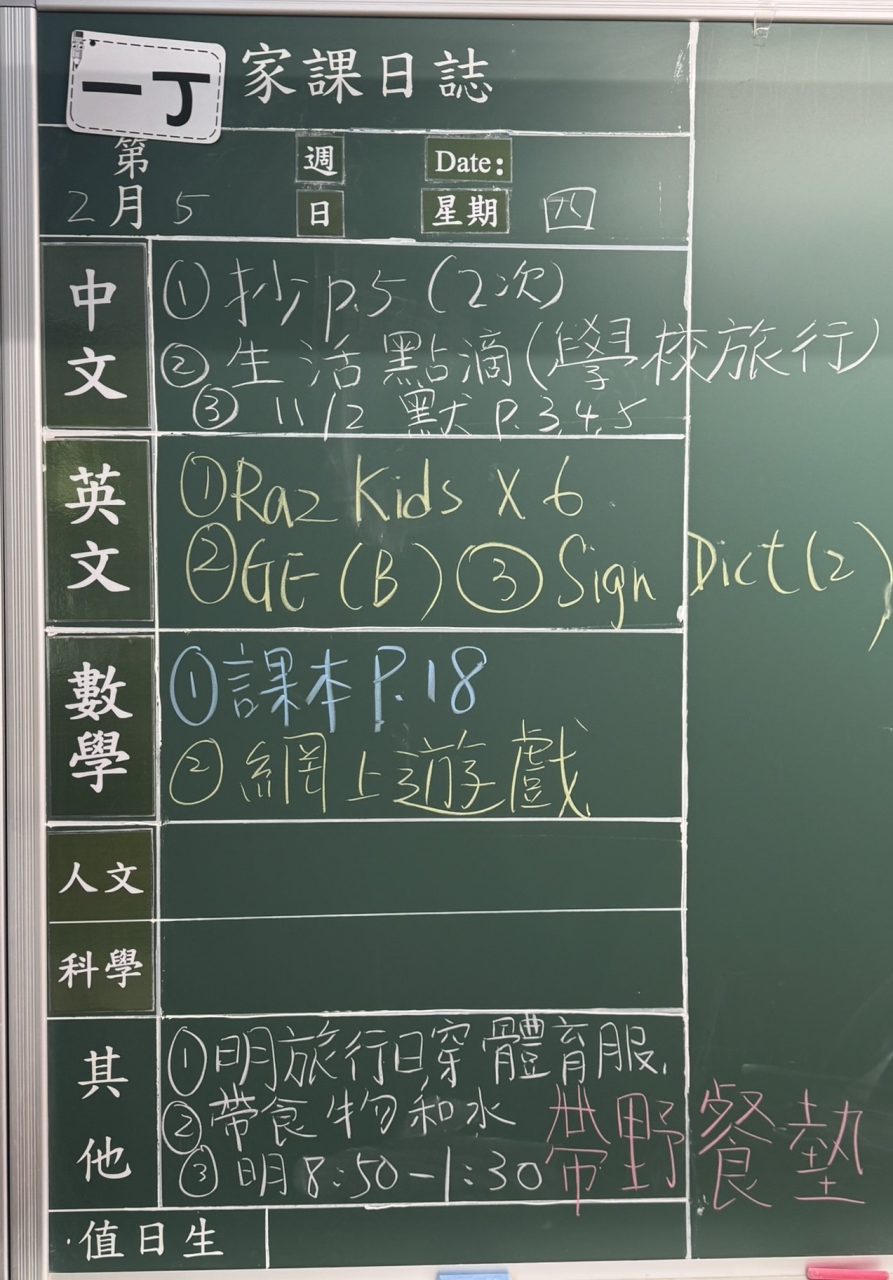 一丁 家課日誌
第 週 Date:
2月5日 星期 四
中文
① 抄 p.5 (2次)
② 生活點滴(學校旅行)
③ 11/2 默 P.3,4,5
英文
① Raz Kids x 6
② GE (B) ③ Sign Dict (2)
數學
① 課本 P.18
② 網上遊戲
人文
科學
其他
① 明旅行日穿體育服.
② 帶食物和水
③ 明 8:50-1:30
帶野餐墊
值日生